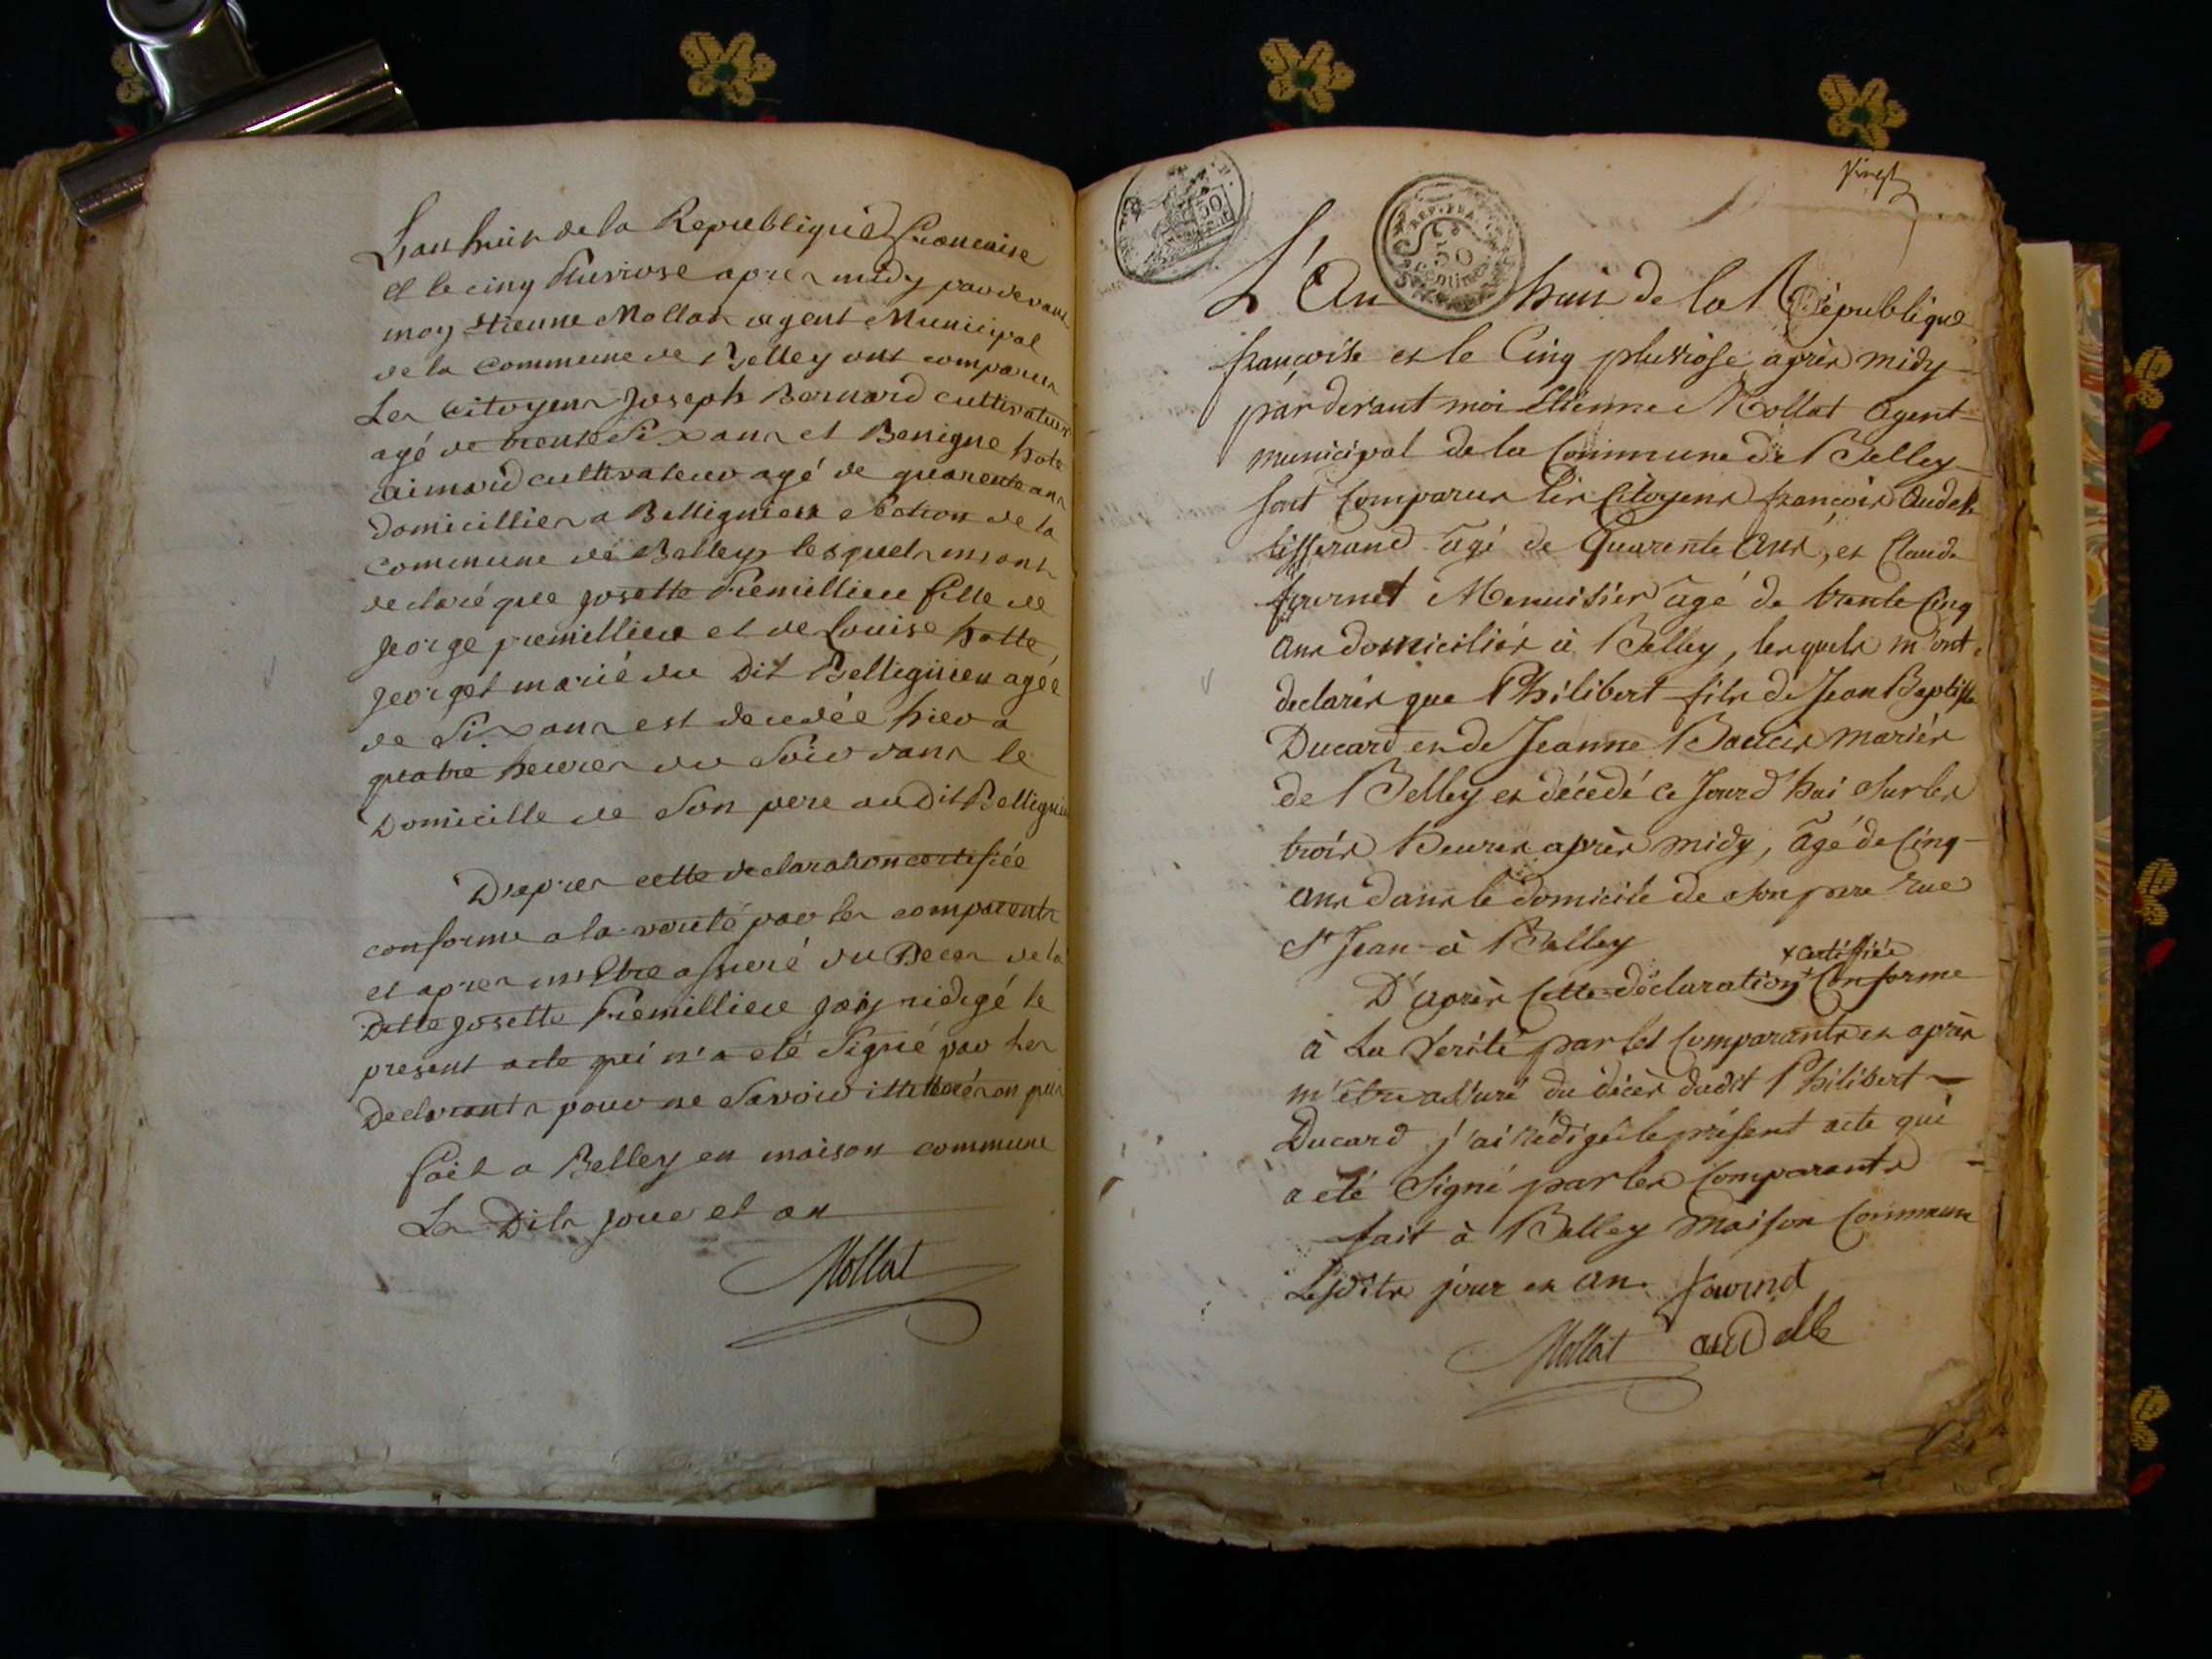 L'an huit de la Republique francaise
et le cinq Pluviose apres midy pardevant
moy Etienne Mollat agent Municipal
de la commune de Belley ont comparus
Les citoyens Joseph Bernard cultivateur
agé de trente Six ans et Benigne hote
aimard cultivateur agé de quarente ans
domicilliés a Bellignieu Section de la
commune de Belley lesquels m'ont
declaré que josette Premillieu fille de
george premillieu et de Louise hotte
georget marié du Dit Bellignieu agée
de Six ans est decedée hier a
quatre heures du Soir dans le
Domicille de Son pere audit Bellignieu
D'apres cette declaration certifiée
conforme a la verité par les comparents
et apres m'etre assuré du Deces de la
Ditte josette Premillieu j'ay redigé le
present acte qui n'a eté Signé par les
Declarants pour ne Savoir
fait a Belley en maison commune
Les Dits jour et an
Mollat
Vingt
REP. FRA
50
centimes
50
L'An huit de la République
françoise et le Cinq pluviose après midy
pardevant moi Etienne Mollat Agent
municipal de la Commune de Belley
sont Comparus les Citoyens françois Audelle
tisserand âgé de Quarente Ans, et Claude
fournet Menuisier âgé de trente Cinq
Ans domiciliés à Belley, lesquels m'ont
declarés que Philibert fils de Jean Baptiste
Ducard et de Jeanne Boucis mariés
de Belley est décedé ce Jourd'hui Sur les
trois heures après midy, âgé de Cinq
Ans dans le domicile de son pere rue
St Jean à Belley
+ certiffiée
D'après Cette déclaration + Conforme
à La Verité par les Comparants et après
m'être assuré du décès dudit Philibert
Ducard j'ai rédigé le présent acte qui
a eté Signé par les Comparants
fait à Belley Maison Commune
Lesdits jour et an. fournet
Mollat audelle